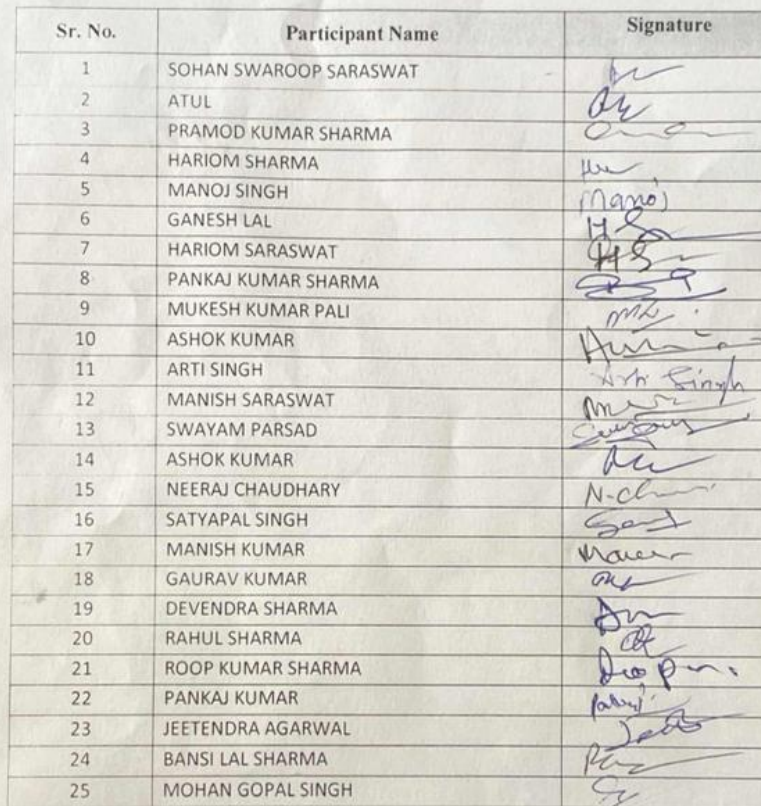 Sr. No. Participant Name Signature
1 SOHAN SWAROOP SARASWAT
2 ATUL
3 PRAMOD KUMAR SHARMA
4 HARIOM SHARMA
5 MANOJ SINGH Manoj
6 GANESH LAL
7 HARIOM SARASWAT HS
8 PANKAJ KUMAR SHARMA
9 MUKESH KUMAR PALI
10 ASHOK KUMAR
11 ARTI SINGH Arti Singh
12 MANISH SARASWAT
13 SWAYAM PARSAD
14 ASHOK KUMAR
15 NEERAJ CHAUDHARY
16 SATYAPAL SINGH
17 MANISH KUMAR
18 GAURAV KUMAR
19 DEVENDRA SHARMA
20 RAHUL SHARMA
21 ROOP KUMAR SHARMA
22 PANKAJ KUMAR
23 JEETENDRA AGARWAL
24 BANSI LAL SHARMA
25 MOHAN GOPAL SINGH